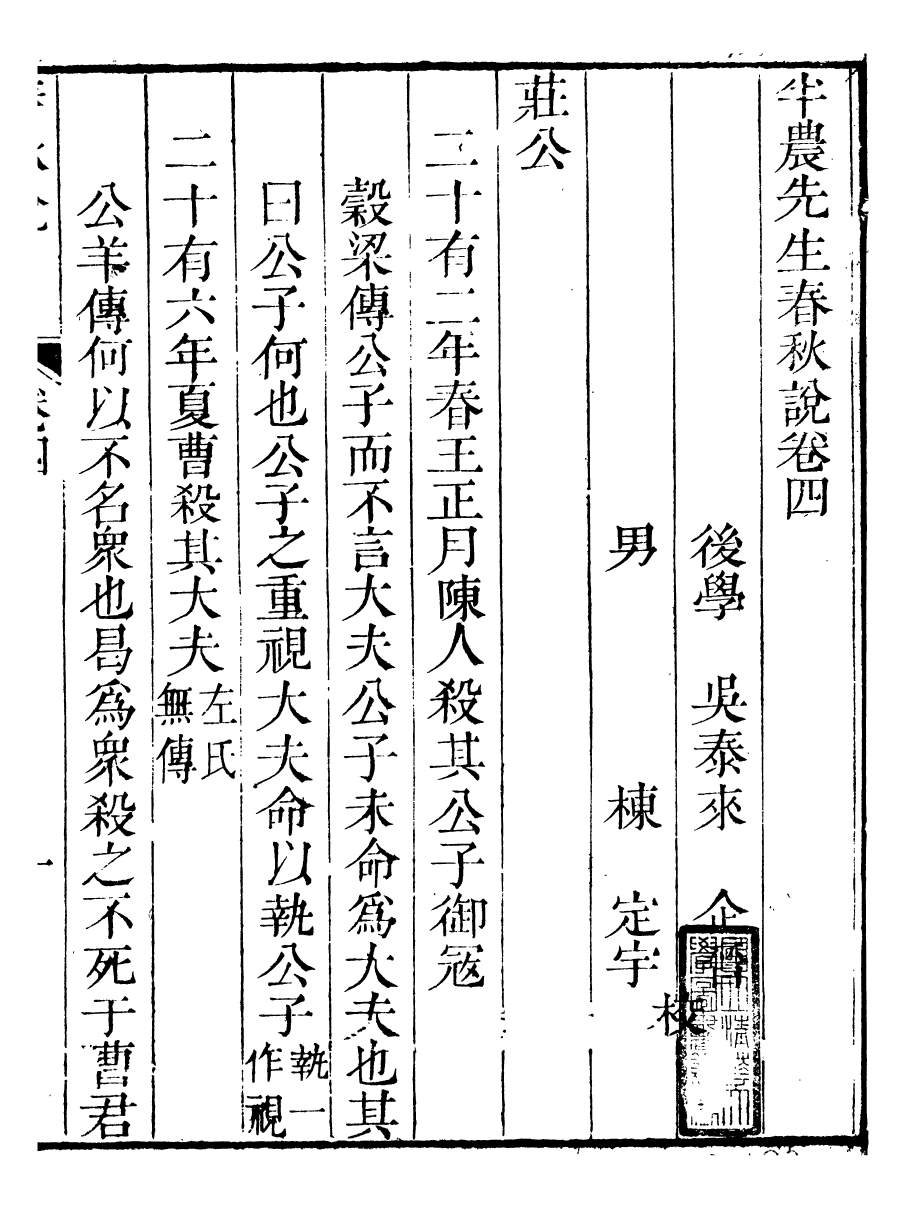 半農先生春秋說卷四
後學　吳泰來　企晉
男　棟　定宇
校
莊公
二十有二年春王正月陳人殺其公子御寇
穀梁傳公子而不言大夫公子未命爲大夫也其
曰公子何也公子之重視大夫命以執公子執一作視
二十有六年夏曹殺其大夫左氏無傳
公羊傳何以不名衆也曷爲衆殺之不死于曹君
卷四
一